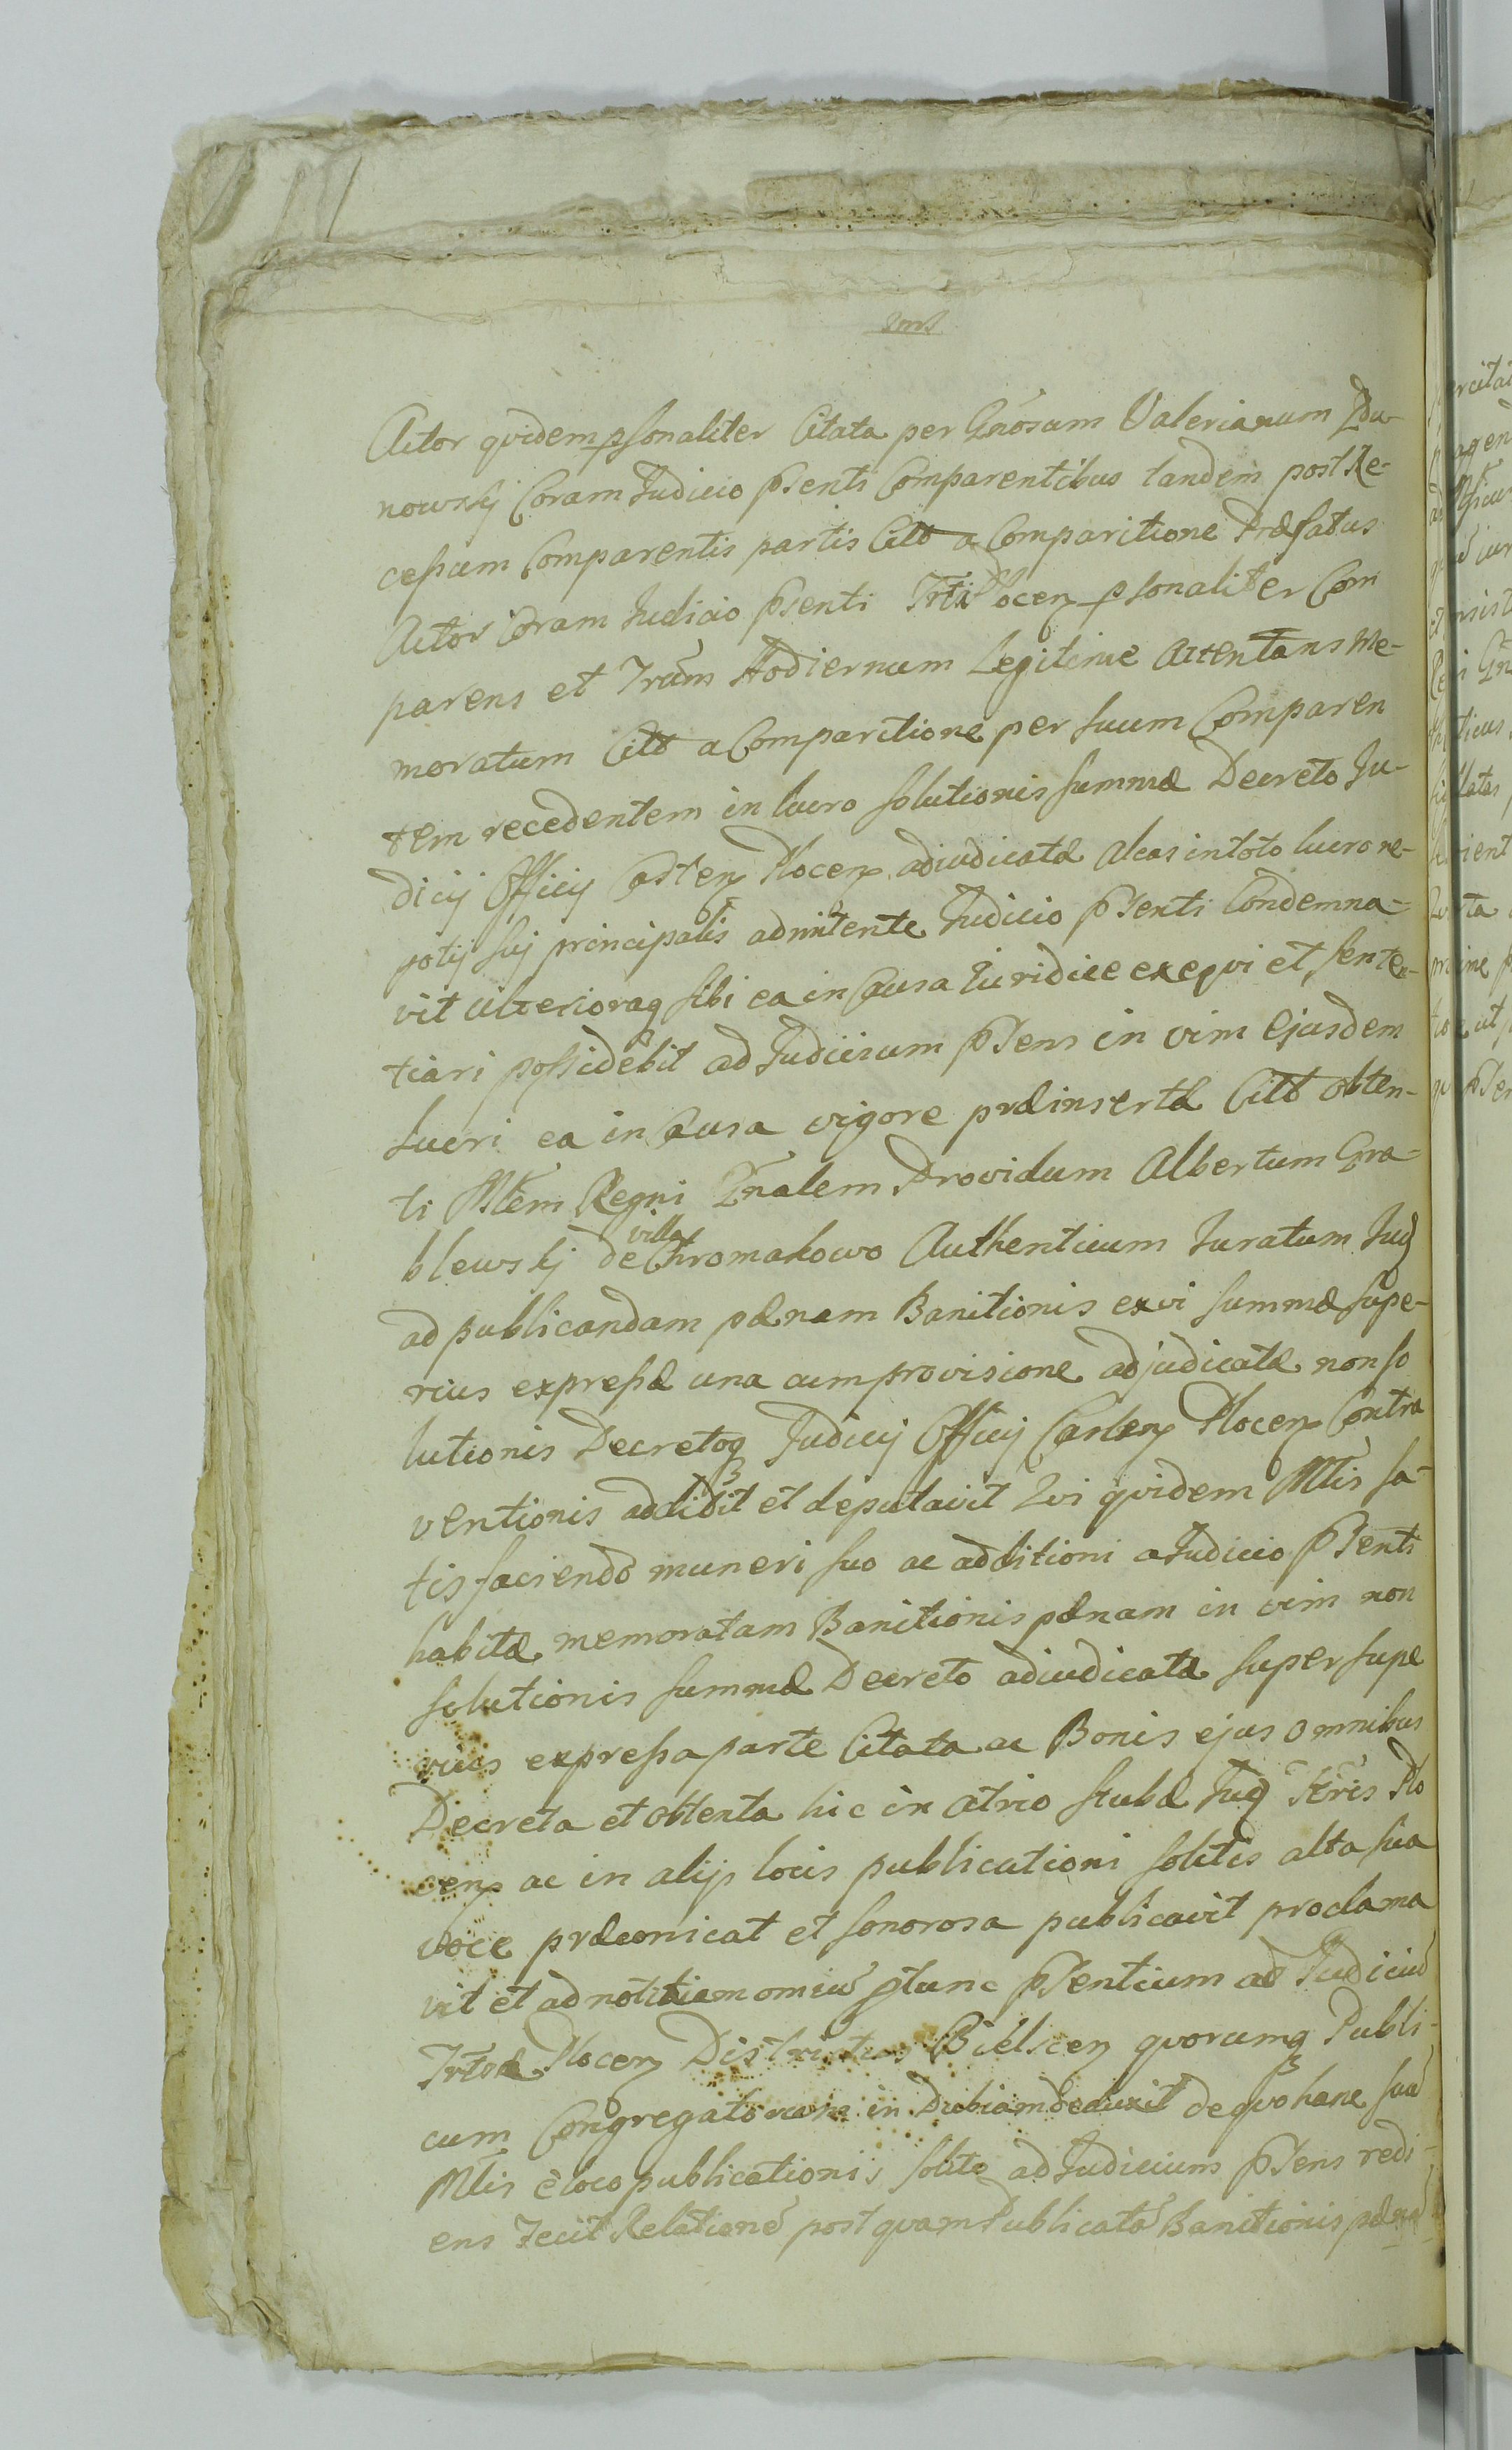 Actor qvidem psonaliter Citata per Gnosum Valerianum Zdu-
nowskj Coram Judicio psenti Comparentibus tandem post Re-
cessum Comparentis partis Citt a Comparitione Præfatus
Actor Coram Judicio psenti Trtri Plocen psonaliter Com
parens et Trum Hodiernum Legitime Attentans Me-
moratum Citt a Comparitione per suum Comparen
tem recedentem in lucro solutionis summæ Decreto Ju-
dicij Officij Casten Plocen adiudicatæ alcas in toto lucro ne-
gotij sui principalis admitente Judicio psenti Condemna-
vit Ulterioraq sibi ea in Causa Juridice exeqvi et senten-
tiari possidebit ad Judicium psens in vim Ejusdem
Lucri ea in Causa vigore præinsertæ Citt obten-
ti Mtem Regni Gnalem Providum Albertum Gra-
blewskj de villa Chromakowo Authenticum Juratum Jud
ad publicandam pænam Banitionis ex vi summæ supe-
rius expressæ una cum provisione adjudicatæ non so
lutionis Decretoq Judicij Officij Casten Plocen Contra
ventionis addidit et deputavit Qvi qvidem Mtis sa-
tisfaciendo muneri suo ac additioni a Judicio psenti
habitæ memoratam Banitionis pænam in vim non
solutionis summæ Decreto adiudicatæ super supe
rius expressa parte Citata ac Bonis ejus omnibus
Decreta et obtenta hic in atrio stubæ Jud Tris Plo
cen ac in alijs locis publicationi solitis alta sua
voce præconicat et sonorosa publicavit proclama
vit et ad notitiam omiu ptunc psentium ad Judiciu
Plocen Districtus Bielscen qvorumq Publi-
cum Congregatorum in Dubiam deduxit de qvo hanc sua
Mtis è loco publicationis solito ad Judicium psens redi-
ens Fecit Relatione post qvam Publicata Banitionis pæna